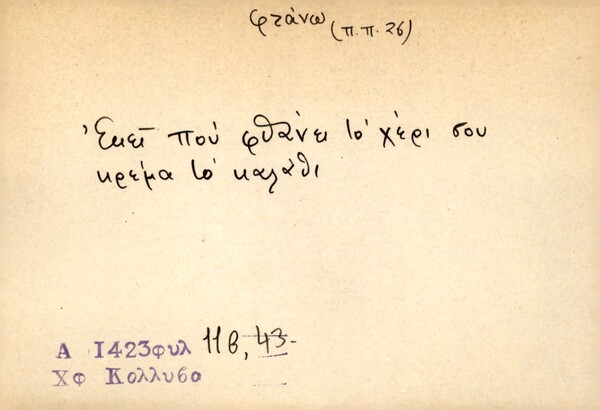 φτάνω (π.π. 26)
Ἐκεῖ πού φθάνει τό χέρι σου
κρέμα τό καλάθι
Α 1423φυλ 11β, 43-
Χφ Κολλυβο